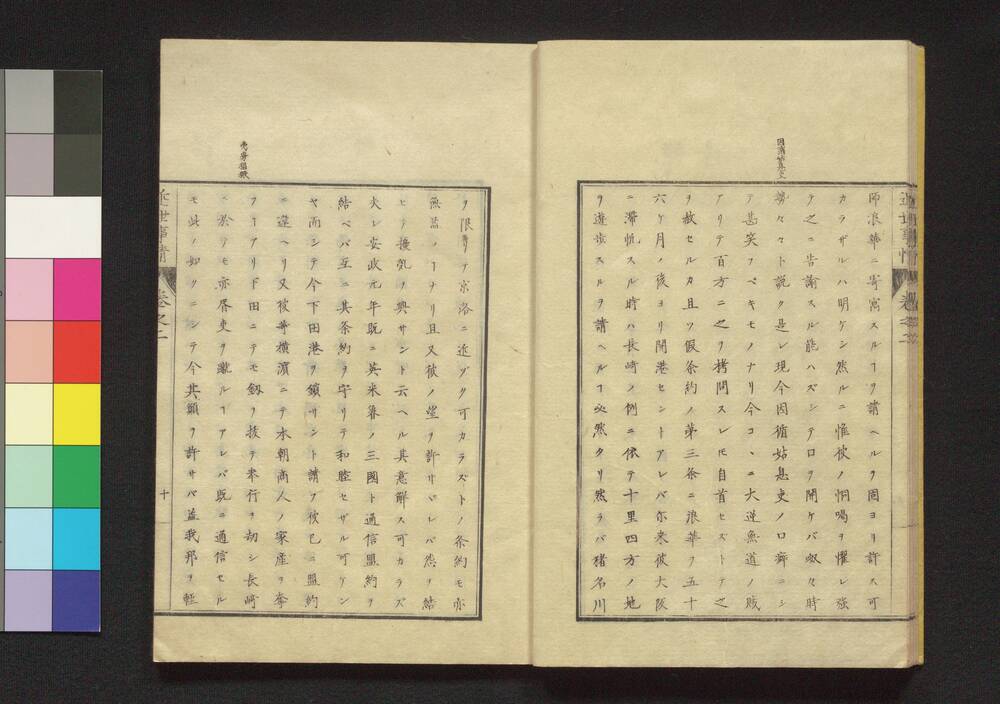 師浪華ニ寄寓スルヿヲ請ヘルヲ固ヨリ許ス可
カラザルハ明ケシ然ルニ惟彼ノ恫喝ヲ懼レ強
テ之ニ告諭スル能ハズシテ口ヲ開ケバ呶々時
勢々々ト説ク是レ現今因循姑息吏ノ口癖ニシ
テ甚笑フベキモノナリ今コヽニ大逆無道ノ賊
アリテ百方ニ之ヲ拷問スレ𪜈自首セズトテ之
ヲ赦セルカ且ソ假条約ノ第三条ニ浪華ヲ五十
六ケ月ノ後ヨリ開港セントアレバ尓来彼大阪
ニ滞帆スル時ハ長崎ノ例ニ依テ十里四方ノ地
ヲ遊歩スルヲ請ヘルヿ必然タリ然ラバ猪名川
近世事情 巻之二
ヲ限リテ京洛ニ近ヅク可カラズトノ条約モ亦
無益ノヿナリ且又彼ノ望ヲ許サヾレバ怨ヲ結
ビテ擾乱ヲ興サント云ヘル其意解ス可カラズ
夫レ安政元年既ニ英米魯ノ三國ト通信盟約ヲ
結ベバ互ニ其条約ヲ守リテ和睦セザル可ケン
ヤ而シテ今下田港ヲ鎖サント請フ彼已ニ盟約
ニ違ヘリ又彼等横濵ニテ本朝商人ノ家産ヲ奪
フヿアリ下田ニテモ劔ヲ抜テ奉行ヲ劫シ長崎
ニ於テモ亦唇吏ヲ蹴ルヿアレバ既ニ通信セル
モ此ノ如クニシテ今其願ヲ許サバ益我邦ヲ軽
近世事情 巻之二 十